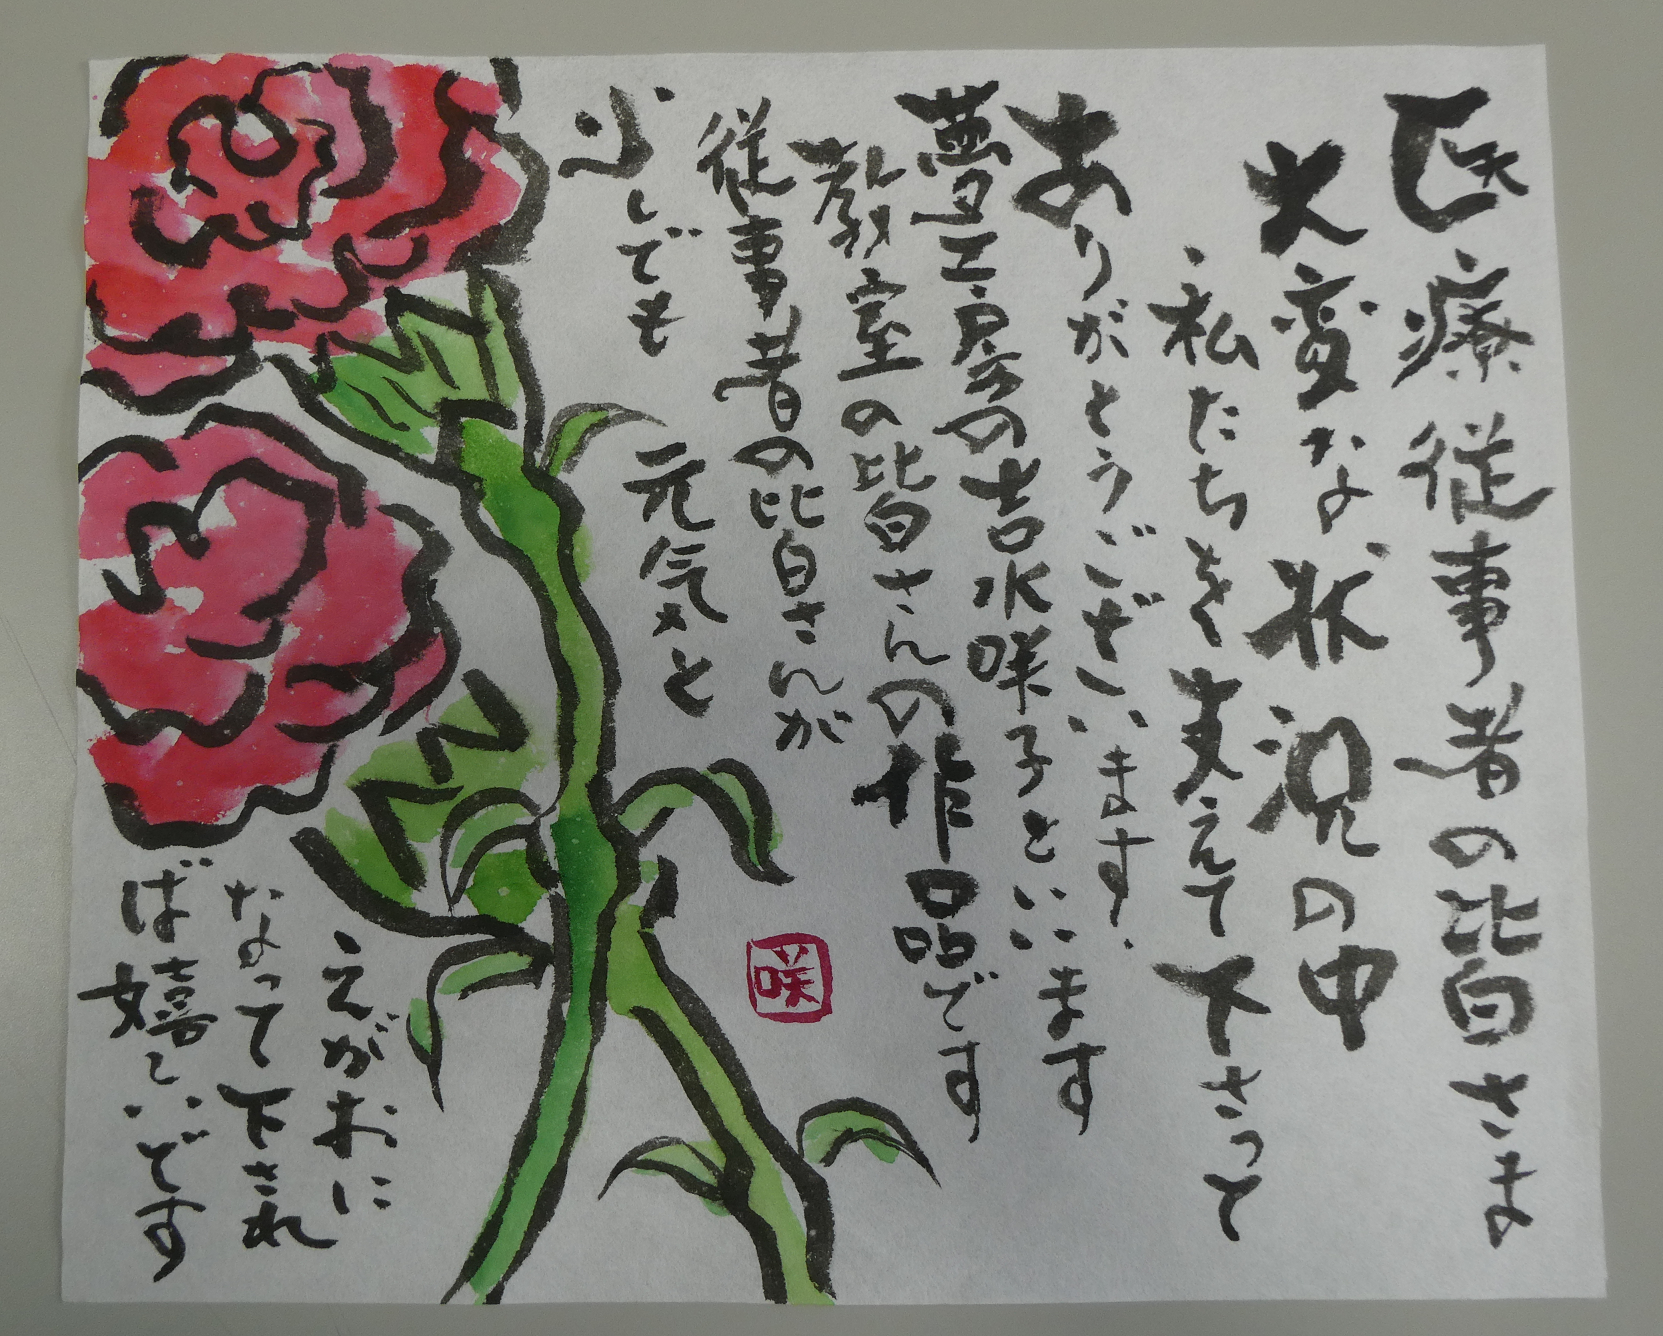 医療従事者の皆さま
大変な状況の中
私たちを支えて下さって
ありがとうございます。
夢工房の吉水咲子といいます
教室の皆さんの作品です
従事者の皆さんが
少しでも
元気と
えがおに
なって下され
ば嬉しいです
咲